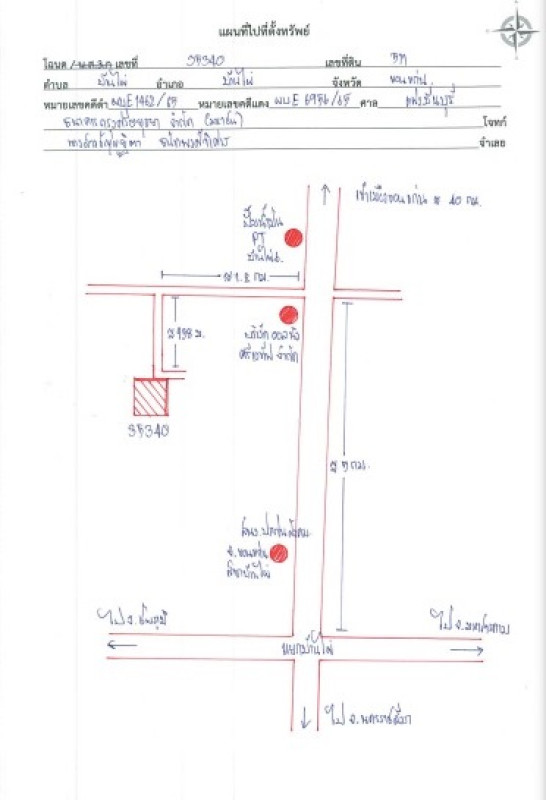 แผนที่ไปที่ตั้งทรัพย์
โฉนด / น.ส.3.ก เลขที่ 35340 เลขที่ดิน
ตำบล บ้านไผ่ อำเภอ บ้านไผ่ จังหวัด ขอนแก่น
หมายเลขคดีดำ ผบE1462/65 หมายเลขคดีแดง ผบE 6956/65 ศาล แพ่งมีนบุรี
ธนาคารกรุงศรีอยุธยา จำกัด (มหาชน) โจทก์
จำเลย
เข้าเมืองขอนแก่น ≈ 40 กม.
ปั๊มน้ำมัน
PT
บ้านไผ่
≈ 1.2 กม.
≈ 198 ม.
บริษัท
จำกัด
35340
กม.
สนง. ประกันสังคม
จ.ขอนแก่น
สาขาบ้านไผ่
ไป จ.ชัยภูมิ
ไป จ.มหาสารคาม
แยกบ้านไผ่
ไป จ.นครราชสีมา